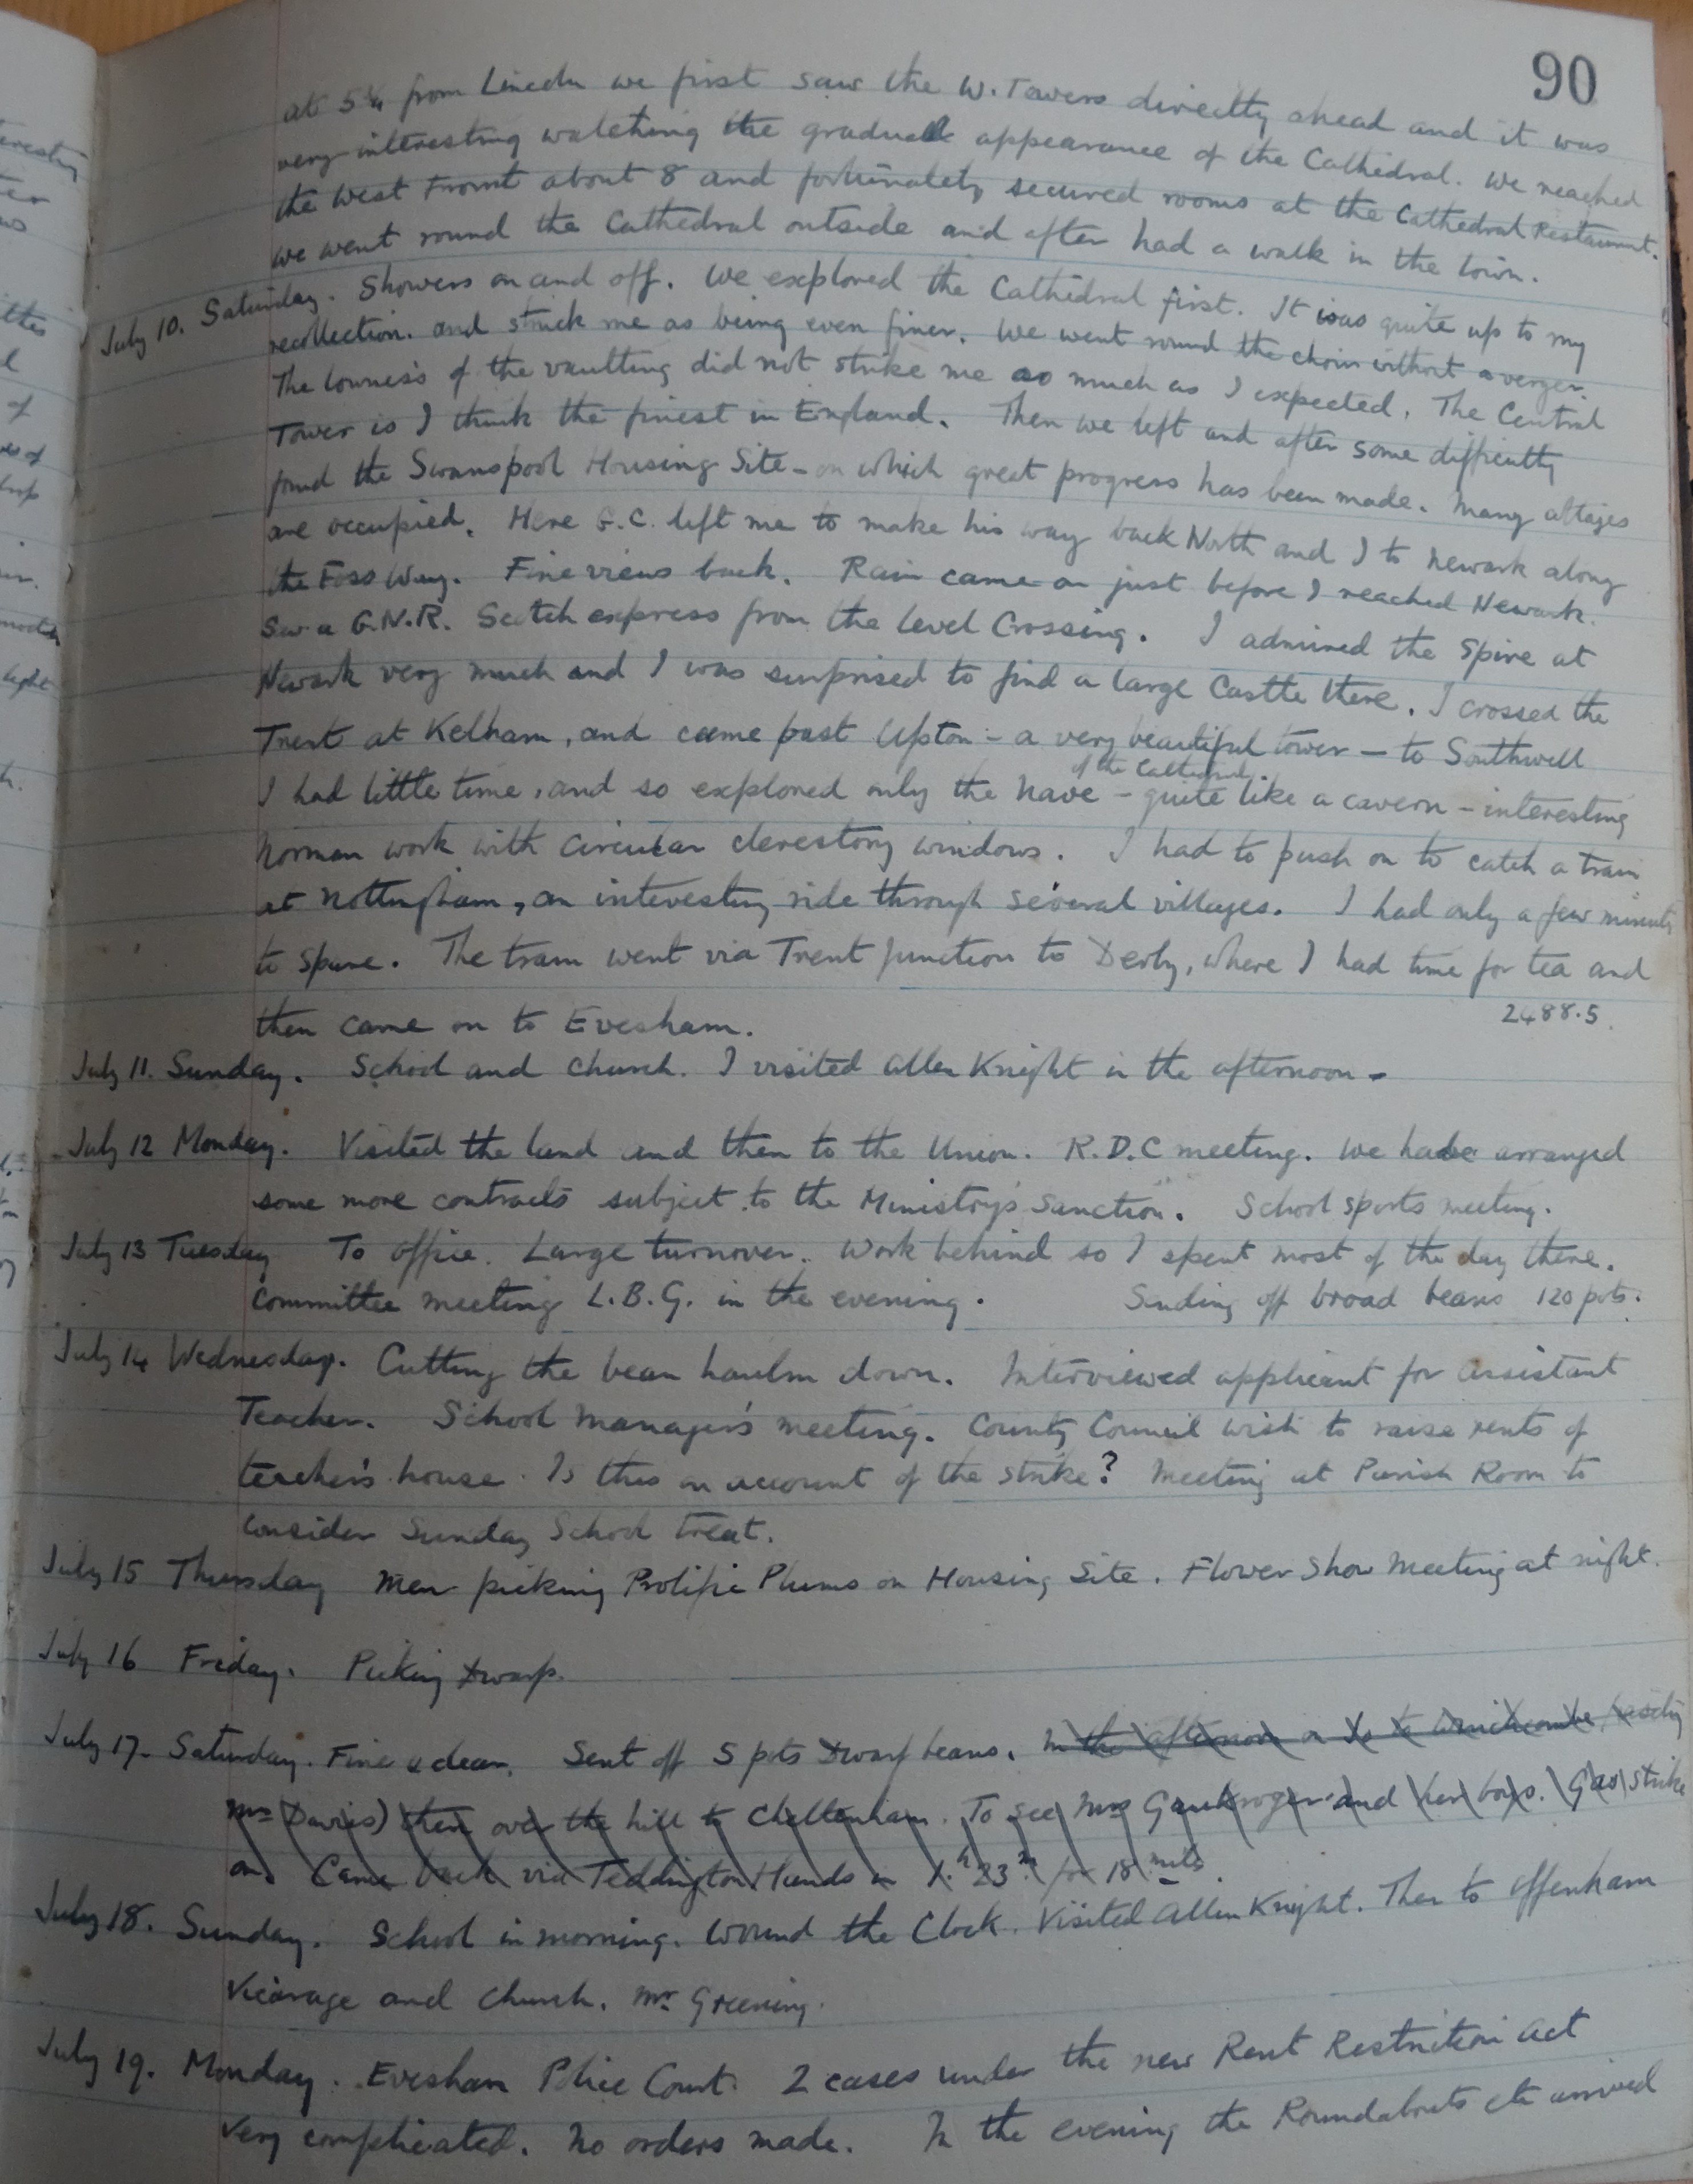 90
at 5¼ from Lincoln we first saw the W. Towers directly ahead and it was
very interesting watching the gradual appearance of the Cathedral. We reached
the West Front about 8 and fortunately secured rooms at the Cathedral Restaurant.
we went round the Cathedral outside and after had a walk in the town.
July 10. Saturday. Showers on and off. We explored the Cathedral first. It was quite up to my
recollection. and struck me as being even finer. We went round the choir without a verger.
The lowness of the vaulting did not strike me so much as I expected. The Central
Tower is I think the finest in England. Then we left and after some difficulty
found the Swanspool Housing Site - on which great progress has been made. Many cottages
are occupied. Here G.C. left me to make his way back North and I to Newark along
the Foss Way. Fine views back. Rain came on just before I reached Newark.
Saw a G.N.R. Scotch express from the Level Crossing. I admired the Spire at
Newark very much and I was surprised to find a large Castle there. I crossed the
Trent at Kelham, and came past Upton - a very beautiful tower - to Southwell
of the Cathedral
I had little time, and so explored only the Nave - quite like a cavern - interesting
Norman work with circular clerestory windows. I had to push on to catch a train
at Nottingham, an interesting ride through several villages. I had only a few minutes
to spare. The train went via Trent Junction to Derby, where I had time for tea and
then came on to Evesham. 2488.5
July 11. Sunday. School and Church. I visited Allen Knight in the afternoon -
July 12 Monday. Visited the land and then to the Union. R.D.C meeting. We have arranged
some more contracts subject to the Ministry's Sanction. School sports meeting.
July 13 Tuesday To office. Large turnover. Work behind so I spent most of the day there.
Committee meeting L.B.G. in the evening. Sending off broad beans 120 pots.
July 14 Wednesday. Cutting the bean haulm down. Interviewed applicant for Assistant
Teacher. School Manager's meeting. County Council wish to raise rents of
teacher's house. Is this on account of the strike? Meeting at Parish Room to
consider Sunday School treat.
July 15 Thursday Men picking Prolific Plums on Housing Site. Flower Show Meeting at night.
July 16 Friday. Picking Dwarfs.
July 17. Saturday. Fine & clear. Sent off 5 pots Dwarf beans. In the afternoon on to Winchcombe (visiting
Mrs Davies) then over the hill to Cheltenham. To see Mrs Gaukroger and her boys. Gas strike
on. Came back via Teddington Hands in 1h 23m for 18 miles.
July 18. Sunday. School in morning. Wound the Clock. Visited Allen Knight. Then to Offenham
Vicarage and Church. Mr Greening.
July 19. Monday. Evesham Police Court. 2 cases under the new Rent Restriction Act
Very complicated. No orders made. In the evening the Roundabouts etc arrived